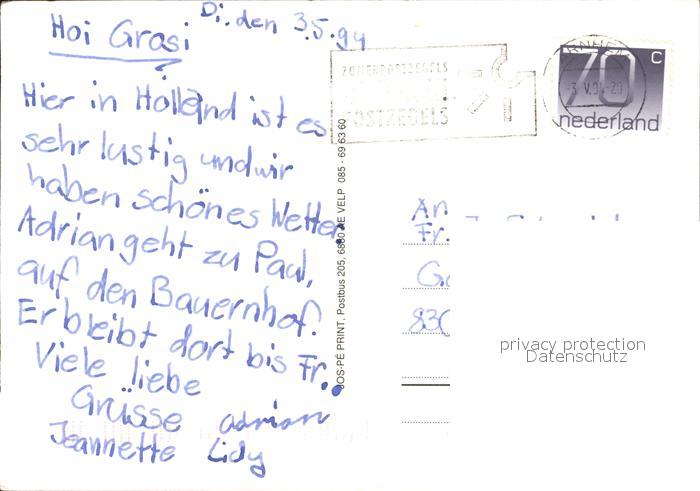 Di. den 3.5.94
Hoi Grosi
Hier in Holland ist es
sehr lustig und wir
haben schönes Wetter.
Adrian geht zu Paul,
auf den Bauernhof.
Er bleibt dort bis Fr..
Viele liebe
Grüsse adrian
Jeannette Lidy
JOS-PÉ PRINT, Postbus 205, 6880 AE VELP 085 - 69 63 60
POSTZEGELS
70 C
nederland
An
Fr.
privacy protection
Datenschutz